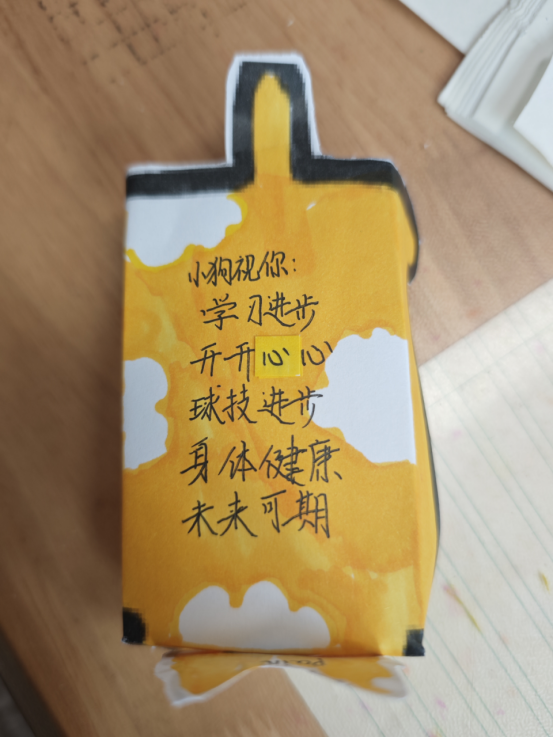 小狗祝你:
学习进步
开开心心
球技进步
身体健康
未来可期